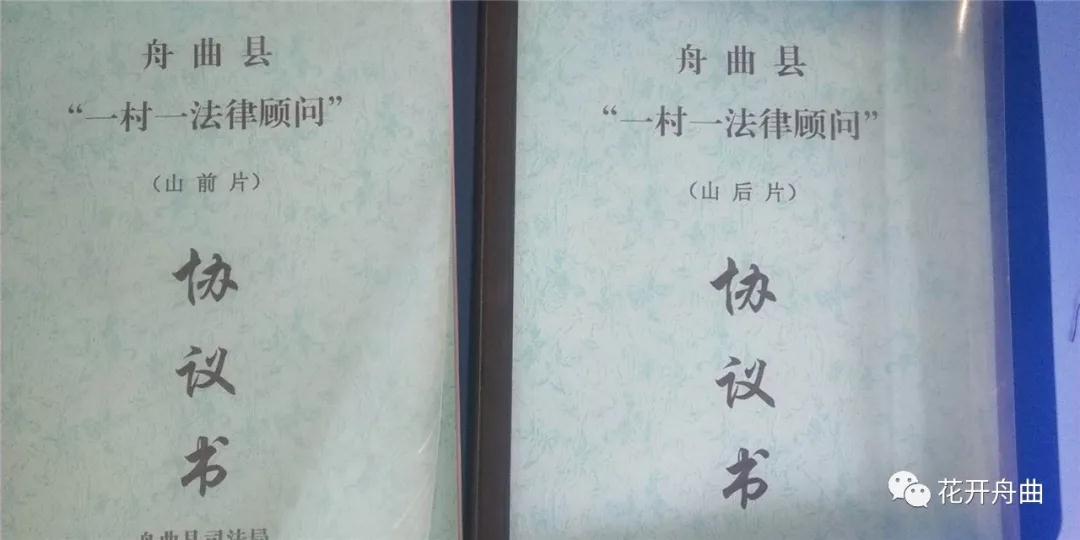 舟曲县
“一村一法律顾问”
（山前片）
协
议
书
舟曲县司法局
舟曲县
“一村一法律顾问”
（山后片）
协
议
书
花开舟曲